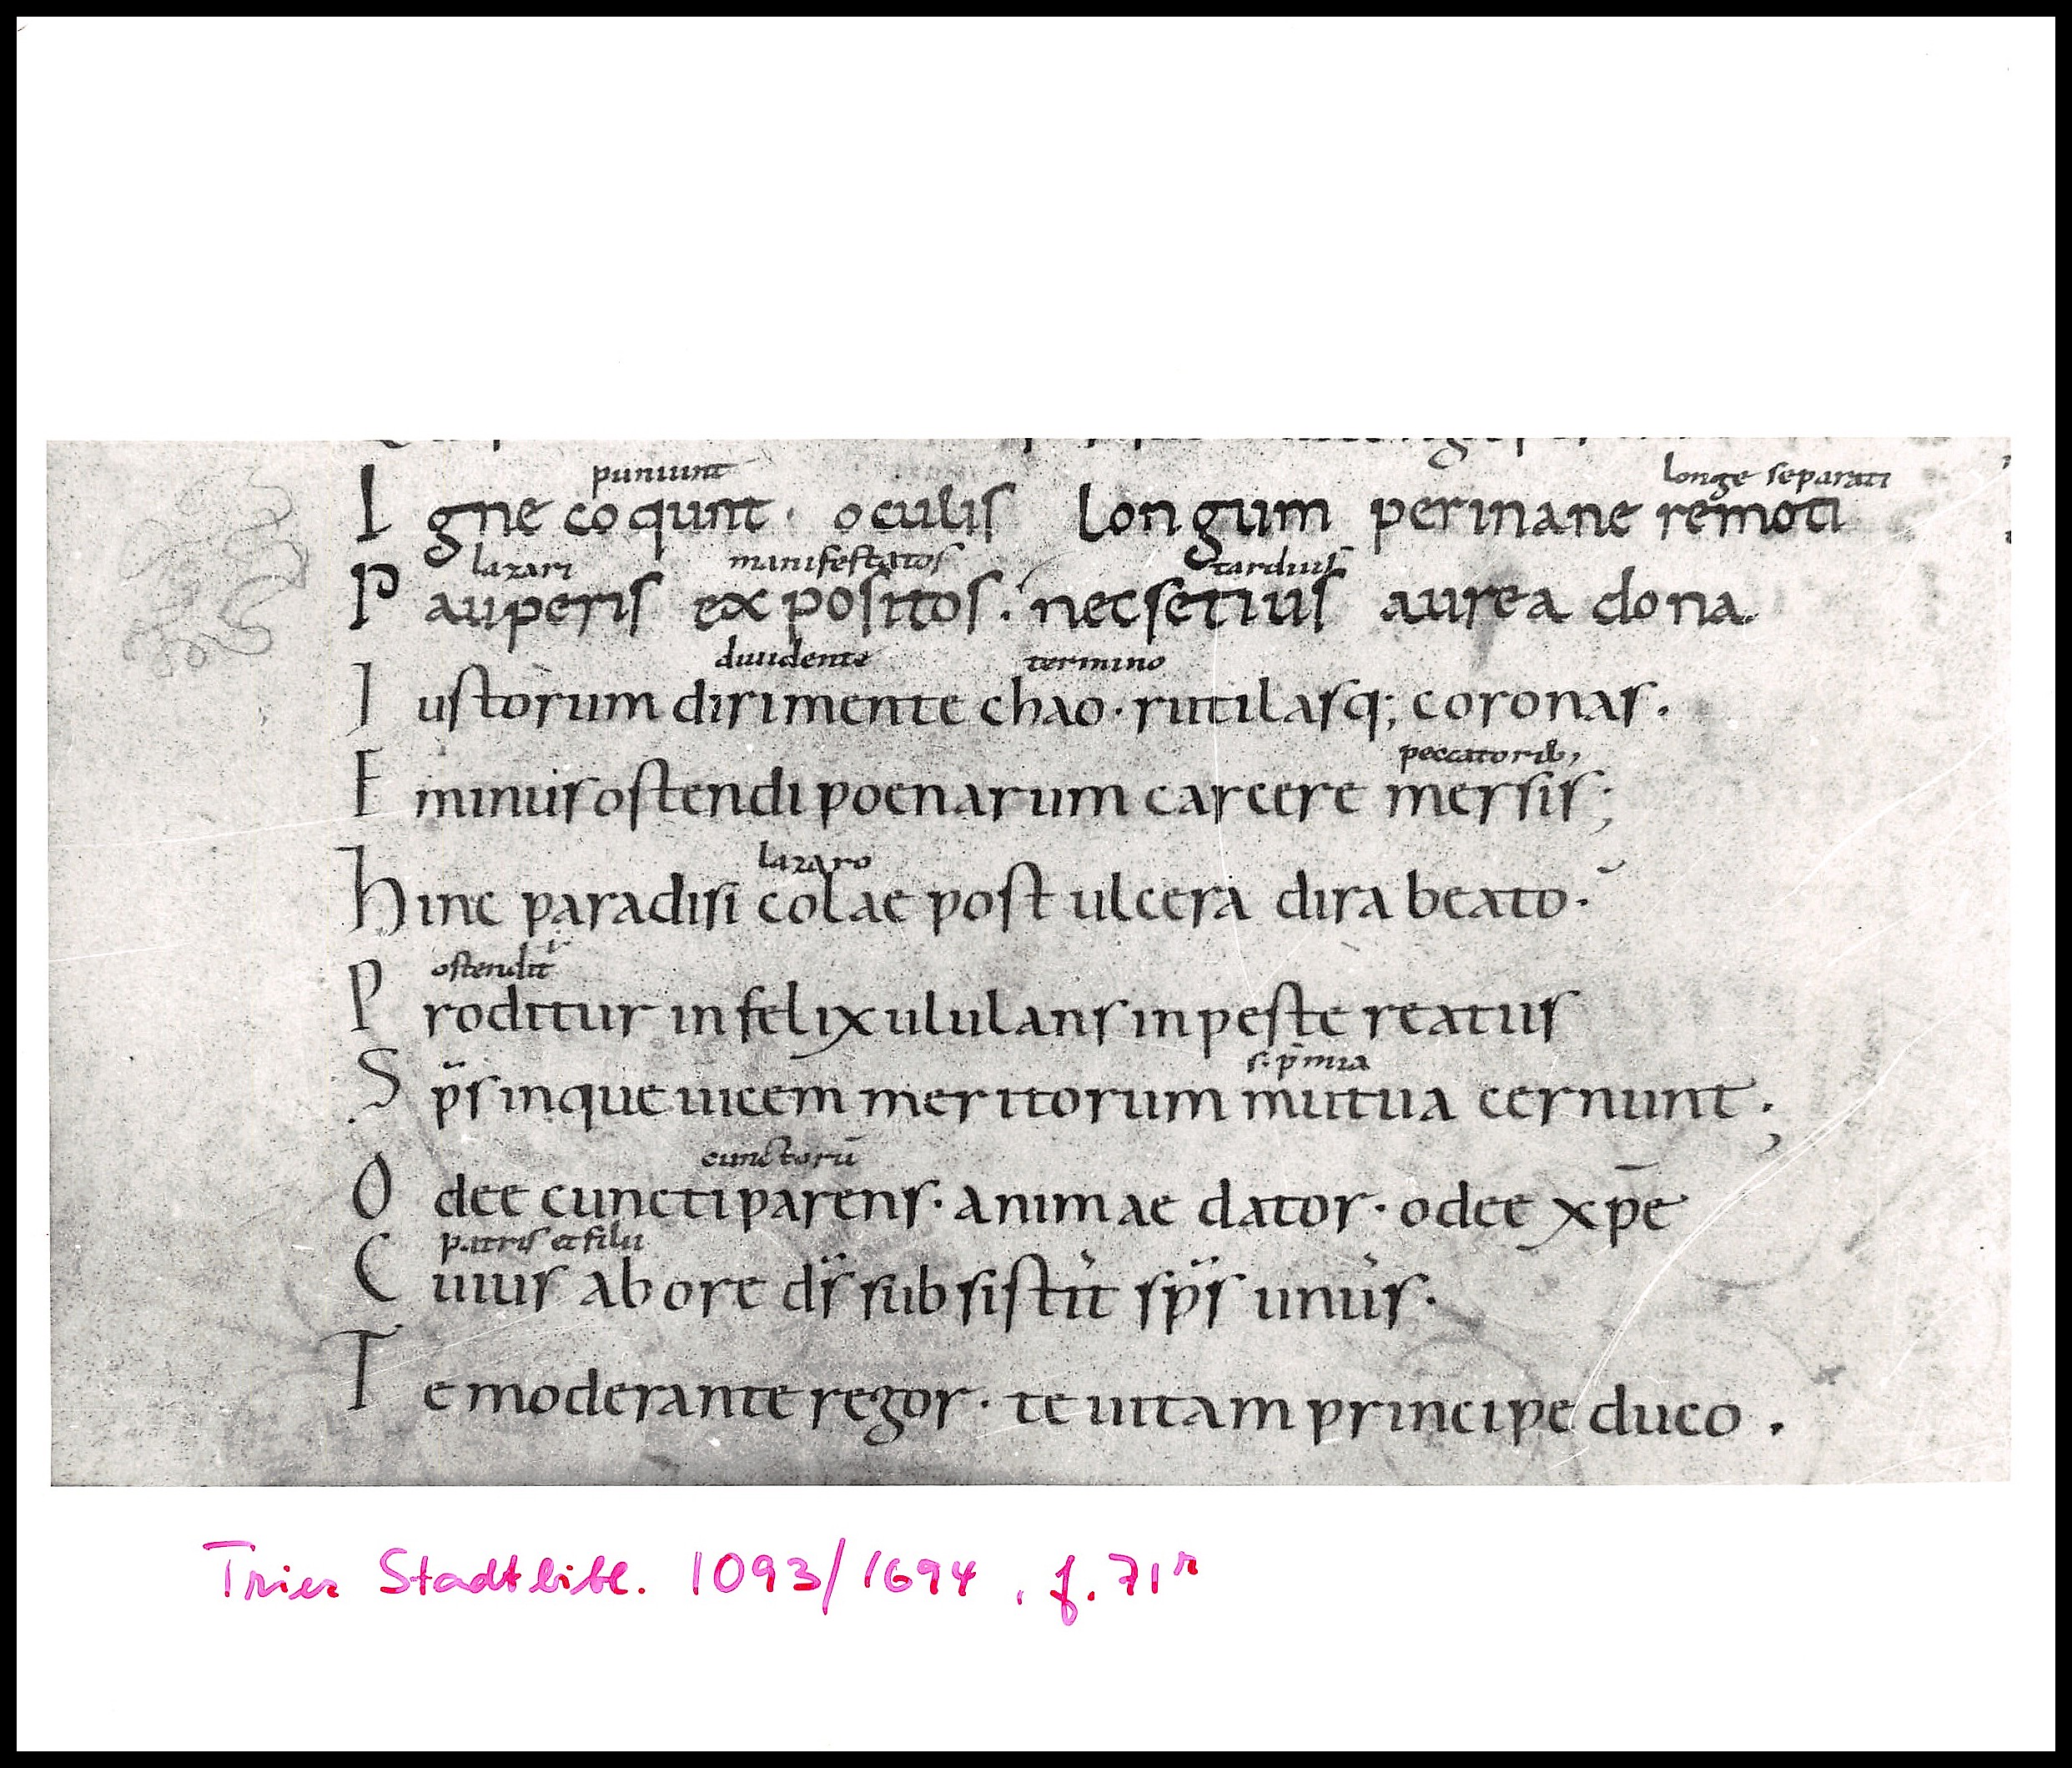 puniunt longe separati
Igne coqunt · oculis longum per inane remoti
lazari manifestatos tardius
Pauperis expositos · nec setius aurea dona.
diuidente termino
Iustorum dirimente chao · rutilasq; coronas .
peccatorib;
Eminus ostendi poenarum carcere mersis;
lazaro
hinc paradisi colae post ulcera dira beato ·
ostenditᷣ
Proditur infelix ululans in peste reatus
s. p̄mia
Sp̄s inque uicem meritorum mutua cernunt ;
cunctorū
O dee cunctiparens · animae dator · o dee xp̄e
patris et filii
Cuius ab ore ds̄ subsistit sp̄s unus ·
Te moderante regor · te uitam principe duco .
Trier Stadtbibl. 1093/1694 , f. 71r